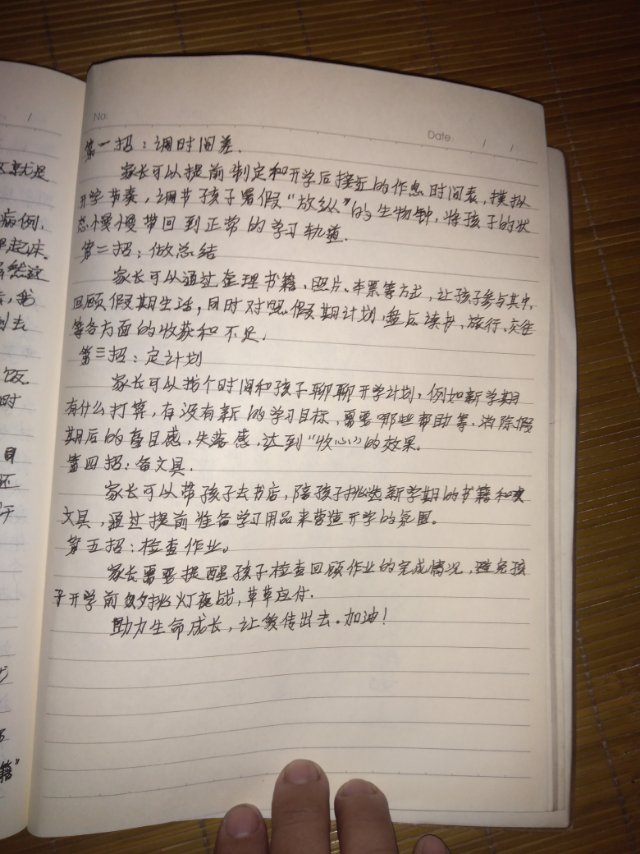 No.
Date / /
第一招：调时间差.
家长可以提前制定和开学后接近的作息时间表，模拟
开学节奏，调节孩子暑假“放纵”的生物钟，将孩子的状
态慢慢带回到正常的学习轨道.
第二招：做总结
家长可以通过整理书籍、照片、车票等方式，让孩子参与其中，
回顾假期生活，同时对照假期计划，盘点读书、旅行、交往
等各方面的收获和不足.
第三招：定计划
家长可以找个时间和孩子聊聊开学计划，例如新学期
有什么打算，有没有新的学习目标，需要哪些帮助等.消除假
期后的盲目感，失落感，达到“收心”的效果.
第四招：备文具.
家长可以带孩子去书店，陪孩子挑选新学期的书籍和
文具，通过提前准备学习用品来营造开学的氛围。
第五招：检查作业。
家长需要提醒孩子检查回顾作业的完成情况，避免孩
子开学前 挑灯夜战，草草应付.
助力生命成长，让爱传出去.加油！
/
病例，
早起床.
去
饭
时
目
还